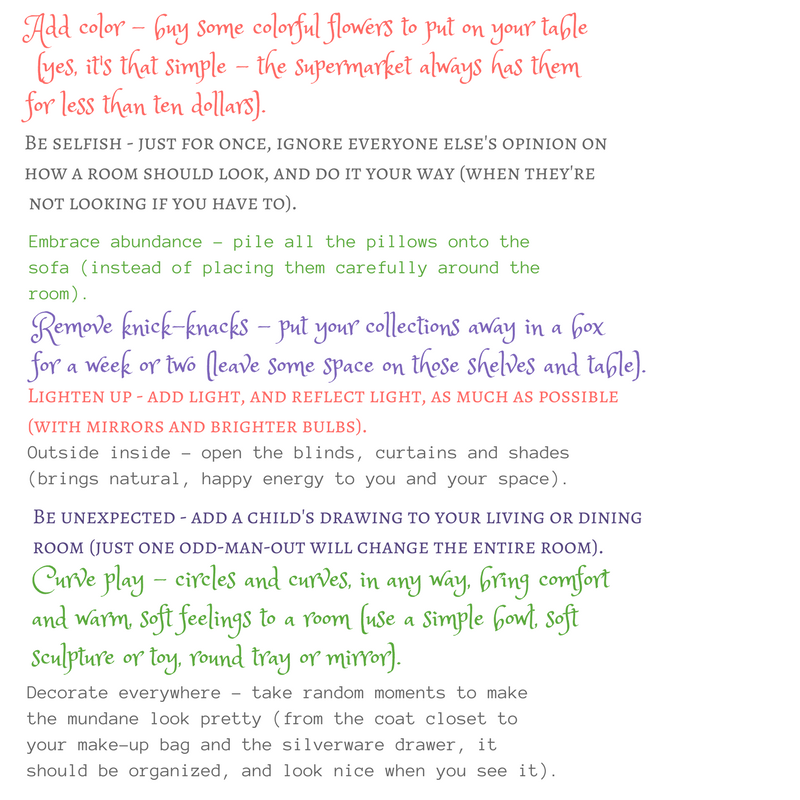 Add color - buy some colorful flowers to put on your table
(yes, it's that simple - the supermarket always has them
for less than ten dollars).
Be selfish - just for once, ignore everyone else's opinion on
how a room should look, and do it your way (when they're
not looking if you have to).
Embrace abundance - pile all the pillows onto the
sofa (instead of placing them carefully around the
room).
Remove knick-knacks - put your collections away in a box
for a week or two (leave some space on those shelves and table).
Lighten up - add light, and reflect light, as much as possible
(with mirrors and brighter bulbs).
Outside inside - open the blinds, curtains and shades
(brings natural, happy energy to you and your space).
Be unexpected - add a child's drawing to your living or dining
room (just one odd-man-out will change the entire room).
Curve play - circles and curves, in any way, bring comfort
and warm, soft feelings to a room (use a simple bowl, soft
sculpture or toy, round tray or mirror).
Decorate everywhere - take random moments to make
the mundane look pretty (from the coat closet to
your make-up bag and the silverware drawer, it
should be organized, and look nice when you see it).